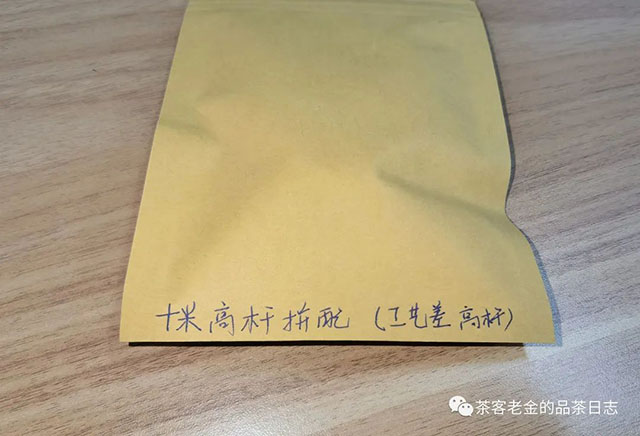 十米高杆拼配（工艺差高杆）
茶客老金的品茶日志